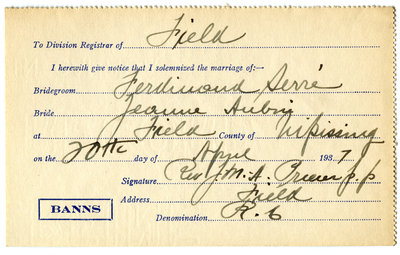 To Division Registrar of Field
I herewith give notice that I solemnized the marriage of:—
Bridegroom Ferdinand Serré
Bride Jeanne Aubin
at Field County of Nipissing
on the 20th day of April 1937
Signature Rev J. M. A. p.p
Address Field
BANNS
Denomination R. C